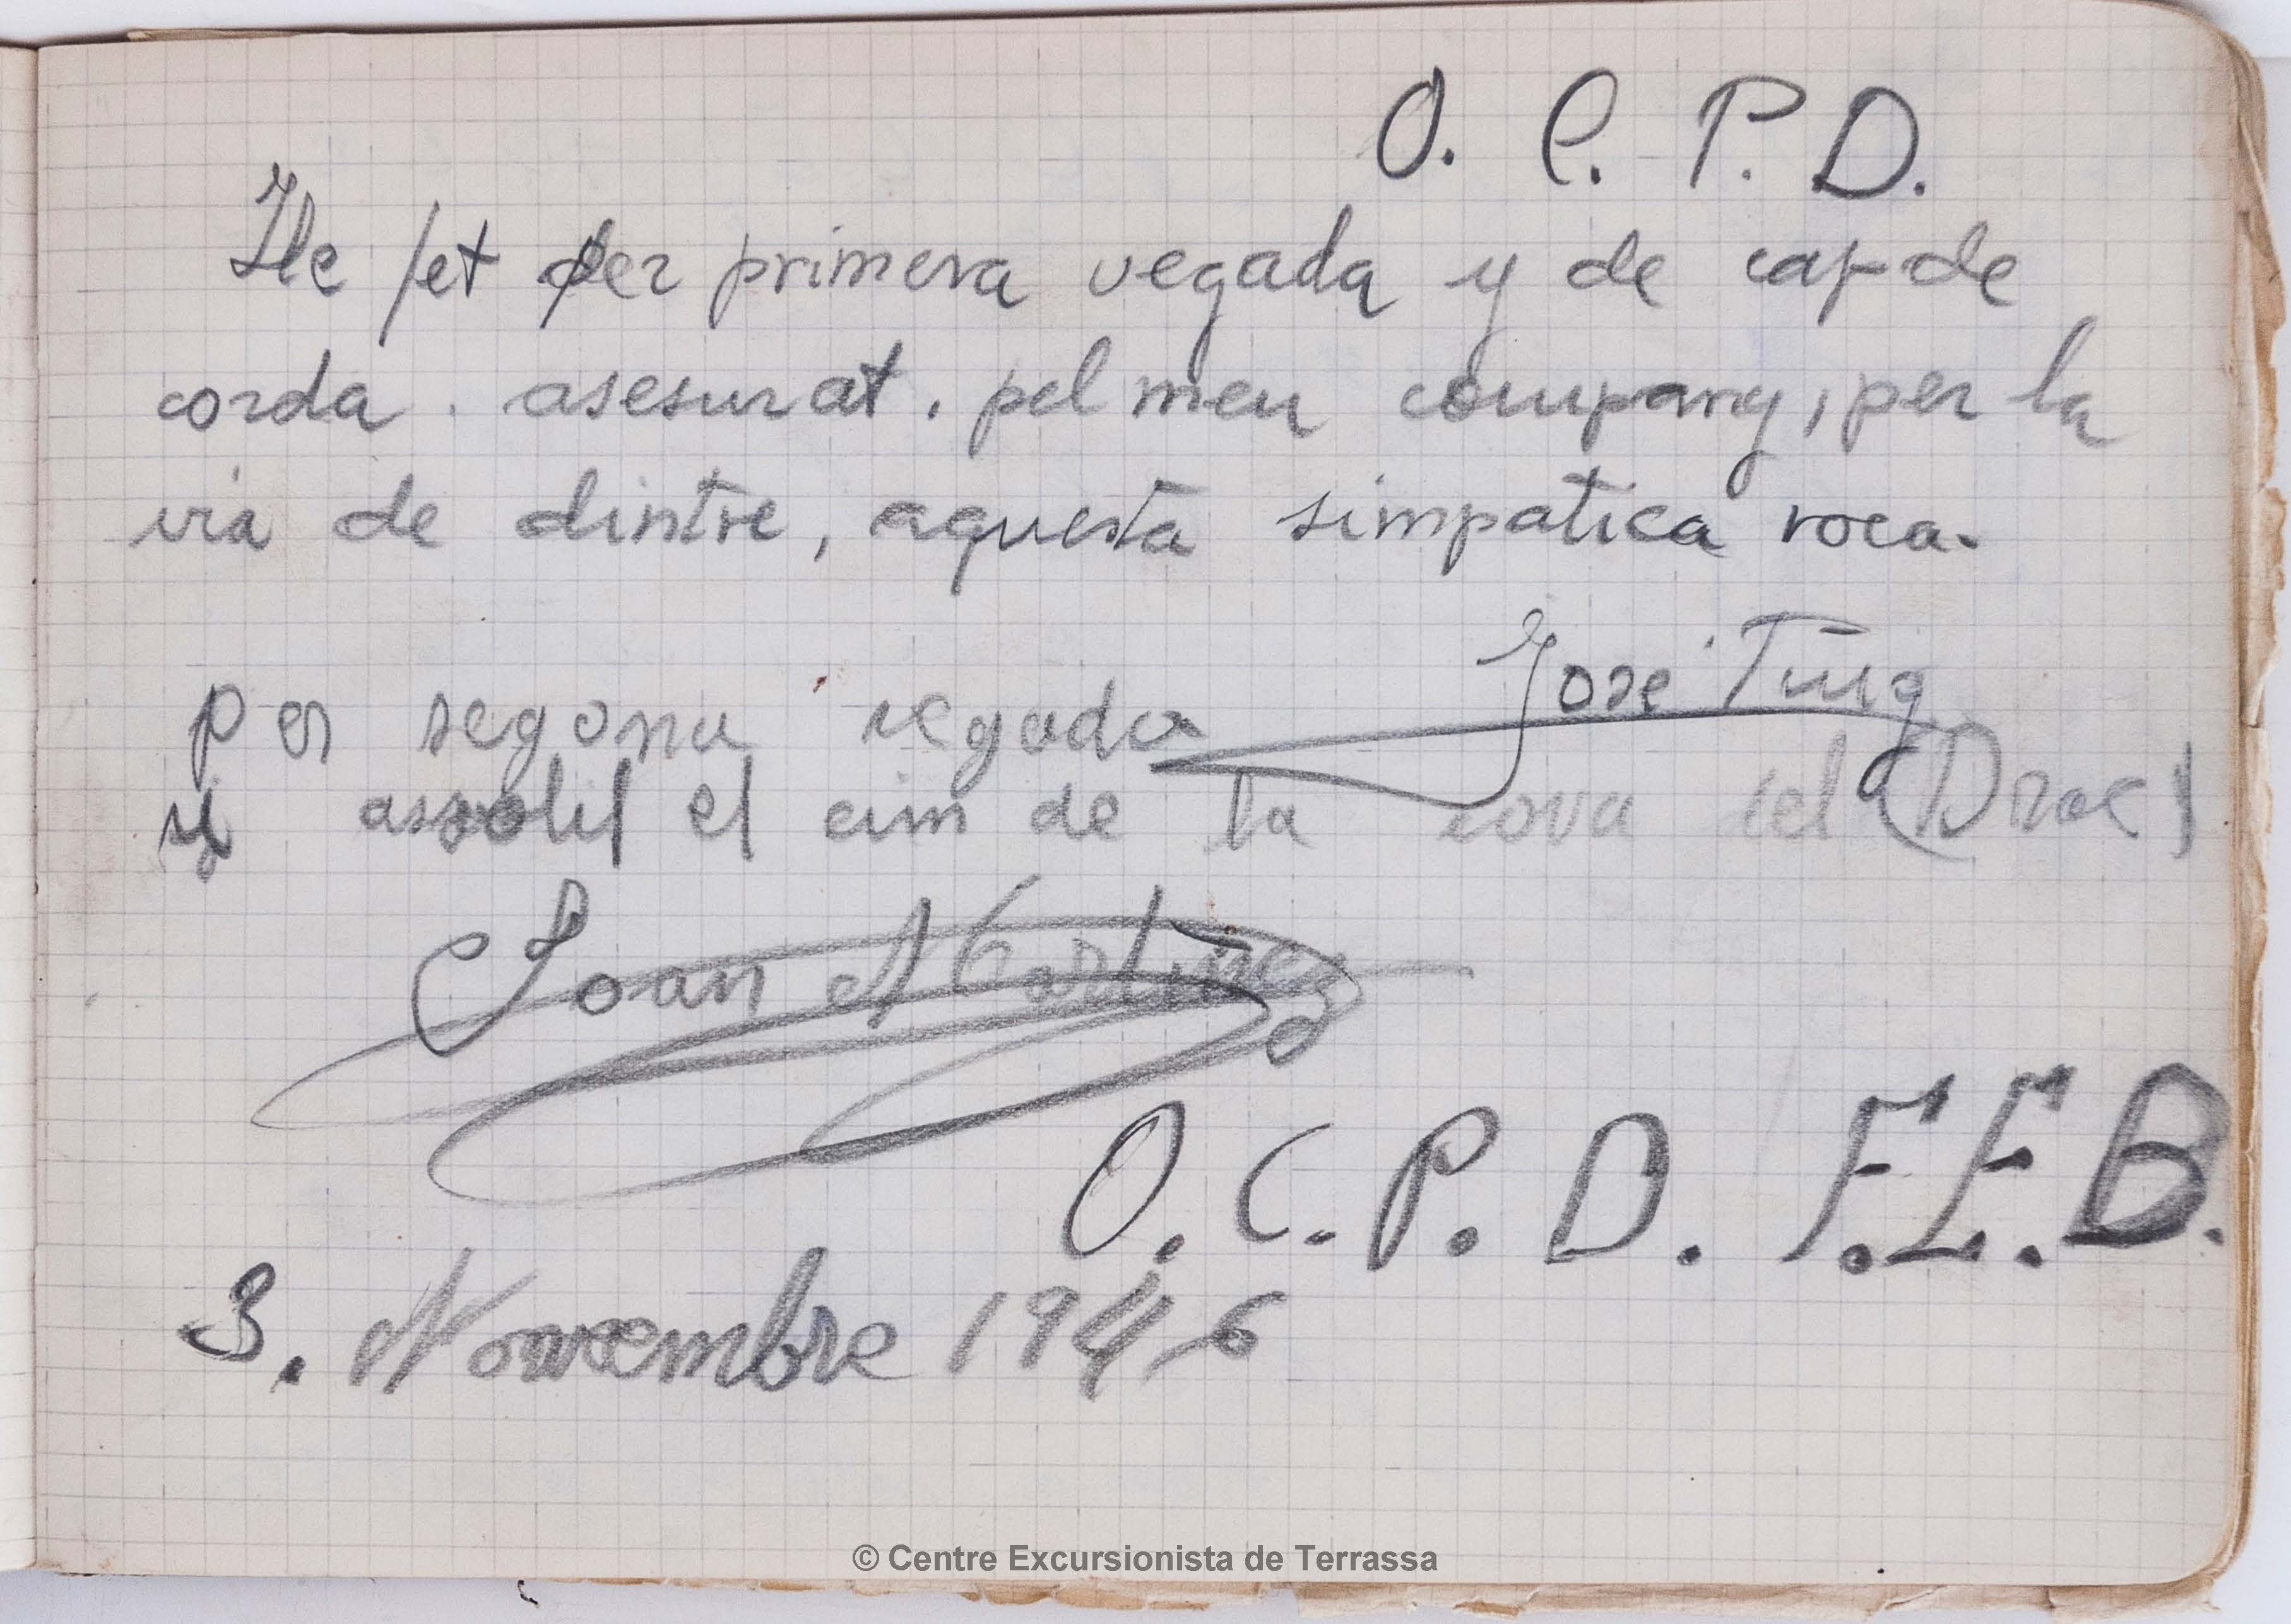 O. C. P. D.
He fet per primera vegada y de cap de
corda. asesurat. pel meu company, per la
via de dintre, aquesta simpatica roca.
Jose Puig
per segona vegada
assolit el cim de la cova del (Drac)
Joan Martinez
O. C. P. D. F.E.B.
3. Novembre 1946
© Centre Excursionista de Terrassa